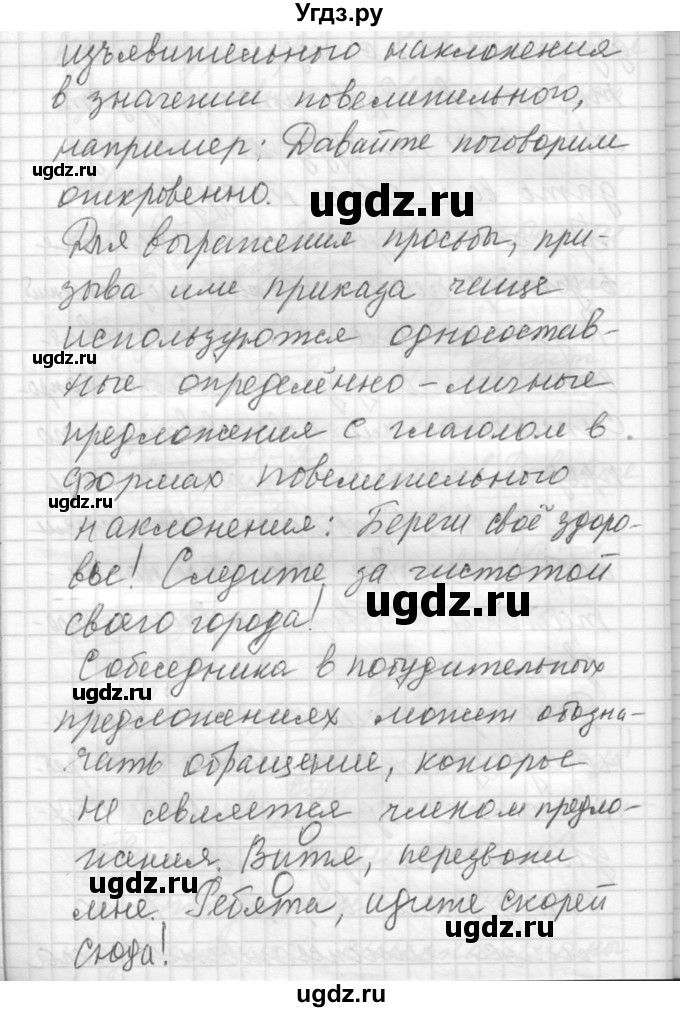 Угдз.ру
изъявительного наклонения
в значении повелительного,
например: Давайте поговорим
ugdz.ru
откровенно.
ugdz.ru
Для выражения просьбы, при-
зыва или приказа чаще
используются односостав-
ugdz.ru
ные определённо-личные
предложения с глаголом в
формах повелительного
ugdz.ru
наклонения: Береги своё здоро-
вье! Следите за чистотой
ugdz.ru
своего города!
Собеседника в побудительных
ugdz.ru
предложениях может обозна-
чать обращение, которое
не является членом предло-
жения. Витя, перезвони
ugdz.ru
мне. Ребята, идите скорей
ugdz.ru
сюда!
ugdz.ru